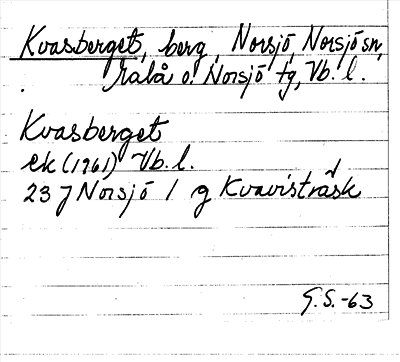 Kvasberget, berg, Norsjö, Norsjö sn,
Malå o. Norsjö tg, Vb. l.
Kvasberget
ek (1961) Vb. l.
23 J Norsjö / g Kvavisträsk
G.S.-63